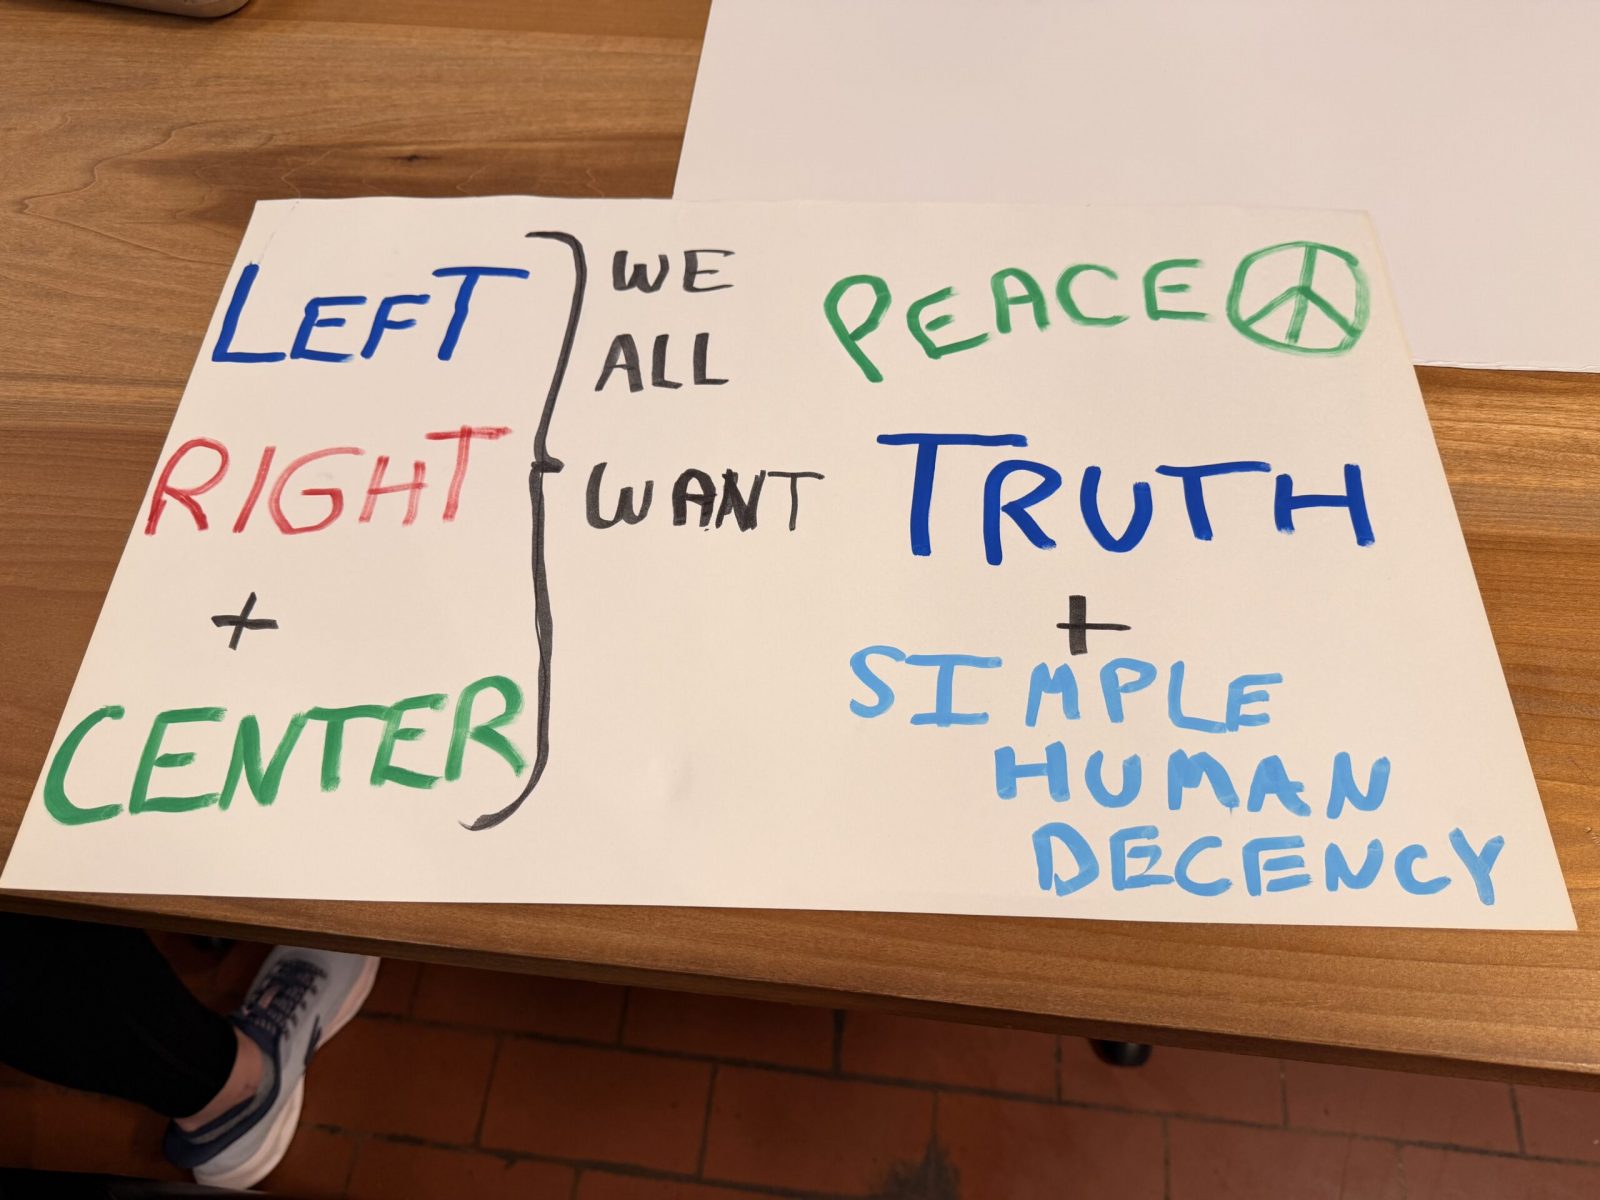 LEFT
RIGHT
+
CENTER
WE
ALL
WANT
PEACE
TRUTH
+
SIMPLE
HUMAN
DECENCY